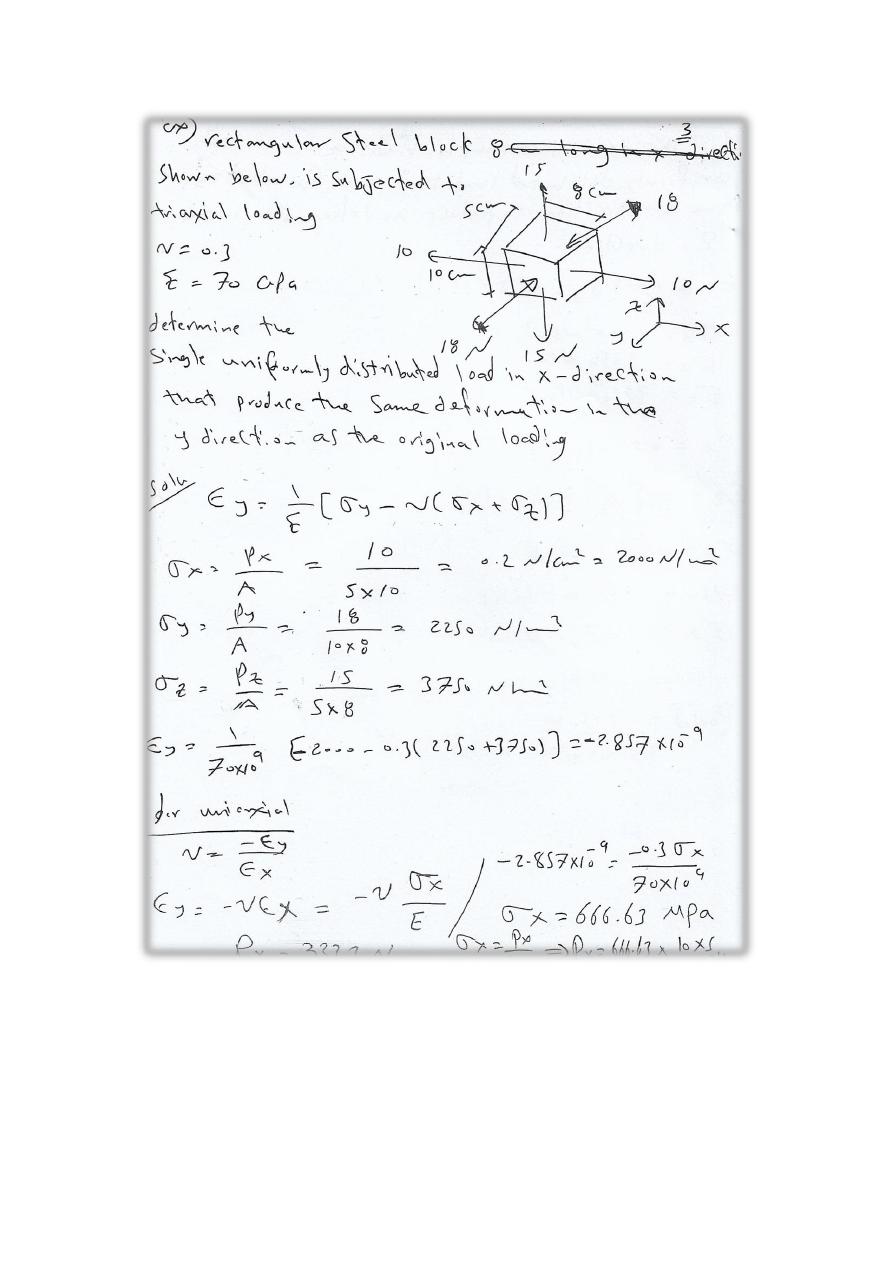 ex) rectangular Steel block 8cm long in x directi
3
Shown below. is subjected to
triaxial loading
ν = 0.3
E = 70 Gpa
15
8 cm
18
5cm
10
10 cm
10 N
z
x
y
18 N
15 N
determine the
Single uniformly distributed load in x-direction
that produce the Same deformation in the
y direction as the original loading
Solu
ϵy = 1/E [σy - ν(σx + σz)]
σx = Px/A = 10/5x10 = 0.2 N/cm² = 2000 N/m²
σy = Py/A = 18/10x8 = 2250 N/m²
σz = Pz/A = 15/5x8 = 3750 N/m²
ϵy = 1/70x10⁹ [-2000 - 0.3(2250 + 3750)] = -2.857 x10⁻⁹
for uniaxial
ν = -ϵy/ϵx
ϵy = -νϵx = -ν σx/E
-2.857x10⁻⁹ = -0.3σx/70x10⁹
σx = 666.63 MPa
σx = Px